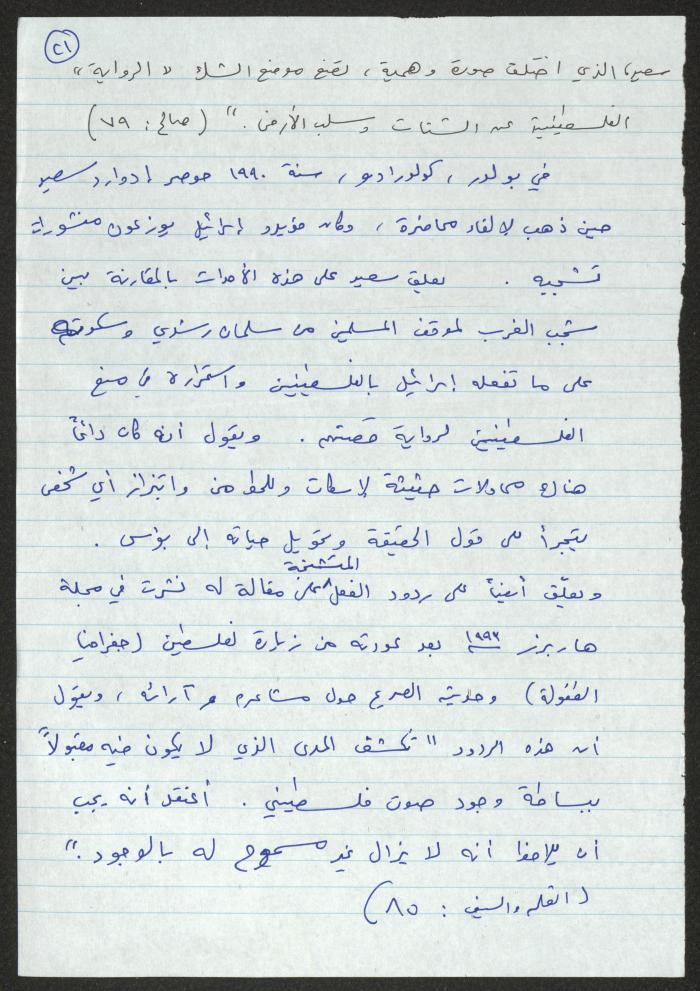 ٢١
سعيد، الذي اختلق صورة وهمية، لتضع موضع الشك لا الرواية،
الفلسطينية عن الشتات وسلب الأرض." (صالح: ٧٩)
في بولدر، كولورادو، سنة ١٩٩٠ حوصر إدوارد سعيد
حين ذهب لإلقاء محاضرة، وكان مؤيدو إسرائيل يوزعون منشورات
تشجبه. يعلق سعيد على هذه الأحداث بالمقارنة بين
شجب الغرب لموقف المسلمين من سلمان رشدي وسكوته
على ما تفعله إسرائيل بالفلسطينيين واستمراره في منع
الفلسطينيين لرواية قصتهم. ويقول أنه كان دائماً
هناك محاولات حثيثة لإسكات وللحط من وابتزاز أي شخص
يتجرأ على قول الحقيقة وتحويل حياته إلى بؤس.
ويعلّق أيضاً على ردود الفعل المتشنجة على مقالة له نشرت في مجلة
هاربرز ١٩٩٢ بعد عودته من زيارة لفلسطين (جغرافيا
الطفولة) وحديثه الصريح حول مشاعره وآرائه، ويقول
أن هذه الردود "تكشف المدى الذي لا يكون فيه مقبولاً
ببساطة وجود صوت فلسطيني. أعتقد أنه يجب
أن يلاحظ أنه لا يزال غير مسموح له بالوجود."
(القلم والسيف: ٨٥)